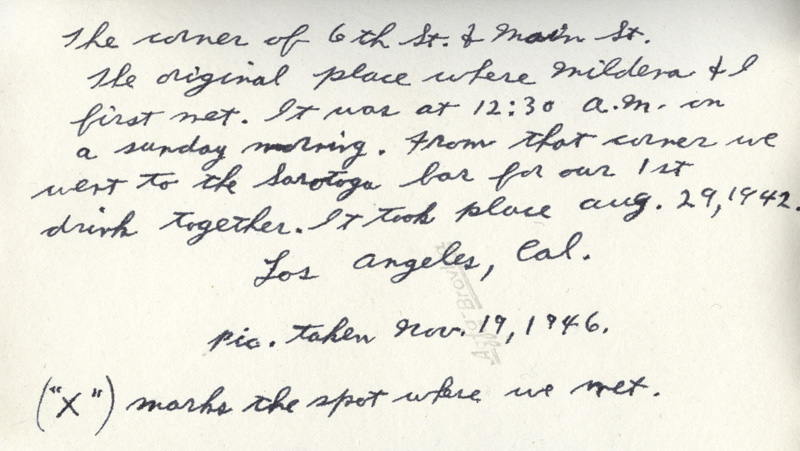 The corner of 6th St. & Main St.
The original place where Mildera & I
first met. It was at 12:30 A.M. on
a sunday morning. From that corner we
went to the Saratoga bar for our 1st
drink together. It took place aug. 29, 1942.
Los Angeles, Cal.
pic. taken Nov. 19, 1946.
("X") marks the spot where we met.